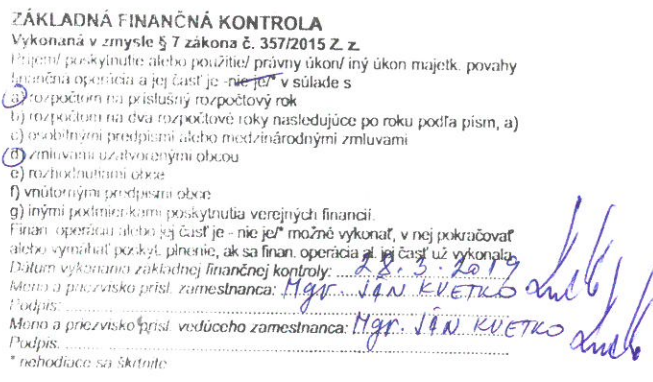 ZÁKLADNÁ FINANČNÁ KONTROLA
Vykonaná v zmysle § 7 zákona č. 357/2015 Z. z.
Príjem/ poskytnutie alebo použitie/ právny úkon/ iný úkon majetk. povahy
finančná operácia a jej časť je -nie je/* v súlade s
a) rozpočtom na príslušný rozpočtový rok
b) rozpočtom na dva rozpočtové roky nasledujúce po roku podľa písm, a)
c) osobitnými predpismi alebo medzinárodnými zmluvami
d) zmluvami uzatvorenými obcou
e) rozhodnutiami obce
f) vnútornými predpismi obce
g) inými podmienkami poskytnutia verejných financií.
Finan. operáciu alebo jej časť je - nie je/* možné vykonať, v nej pokračovať
alebo vymáhať poskyt. plnenie, ak sa finan. operácia al. jej časť už vykonala.
Dátum vykonania základnej finančnej kontroly: 28. 3. 2019
Meno a priezvisko prísl. zamestnanca: Mgr. JÁN KVETKO
Podpis:
Meno a priezvisko prísl. vedúceho zamestnanca: Mgr. JÁN KVETKO
Podpis.
* nehodiace sa škrtnite